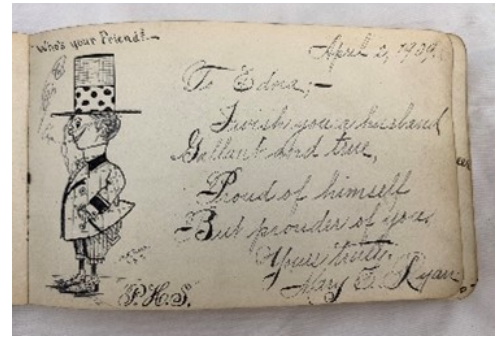 "Who's your Friend?—
April 2, 1909.
To Edna;—
I wish you a husband
Gallant and true,
Proud of himself
But prouder of you,
Yours truly,
Mary E. Ryan
P.H.S.